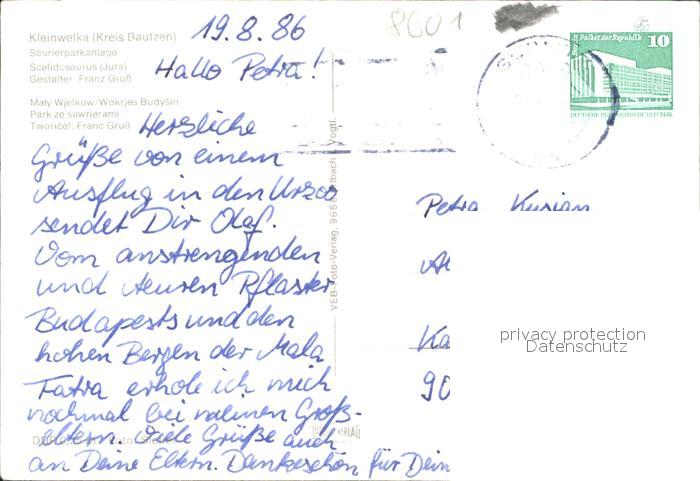 Kleinwelka (Kreis Bautzen)
Saurierparkanlage
Scelidosaurus (Jura)
Gestalter: Franz Gruß
Mały Wjelkow/Wokrjes Budyšin
Park ze sawrierami
Tworićel: Franc Gruß
19.8.86
Hallo Petra!
Herzliche
Grüße von einem
Ausflug in den Urzoo
sendet Dir Olaf.
Vom anstrengenden
und teuren Pflaster
Budapests und den
hohen Bergen der Mala
Fatra erhole ich mich
nochmal bei meinen Groß-
eltern. Viele Grüße auch
an Deine Eltern. Dankeschön für Dein
8601
Palast der Republik
10
DEUTSCHE DEMOKRATISCHE REPUBLIK
VEB Foto-Verlag, 965 Vogtl.
VERLAG
Petra
Ka
90
privacy protection
Datenschutz